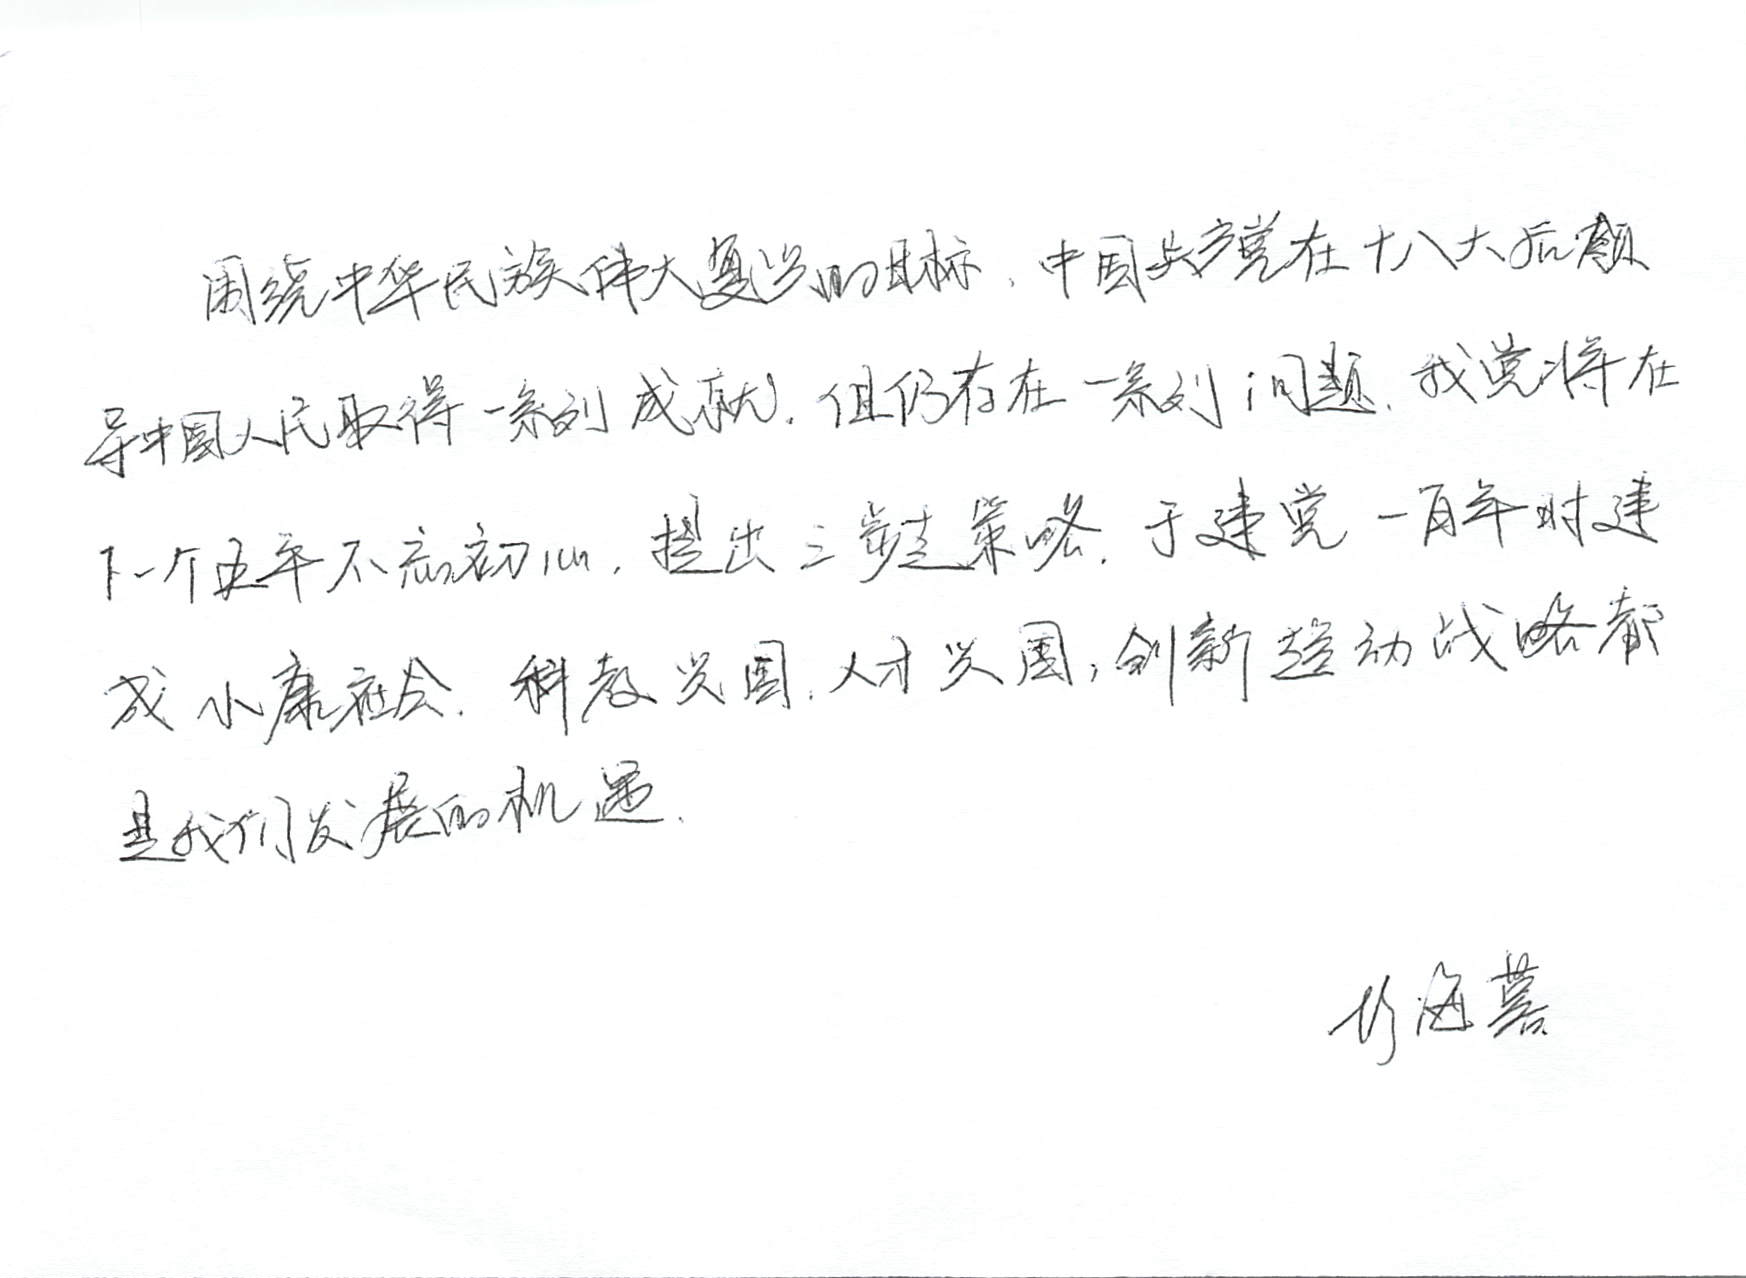 围绕中华民族伟大复兴的目标,中国共产党在十八大后领
导中国人民取得一系列成就,但仍存在一系列问题,我党将在
下一个五年不忘初心,提出三步走策略,于建党一百年时建
成小康社会.科教兴国,人才兴国,创新驱动战略都
是我们发展的机遇.
海